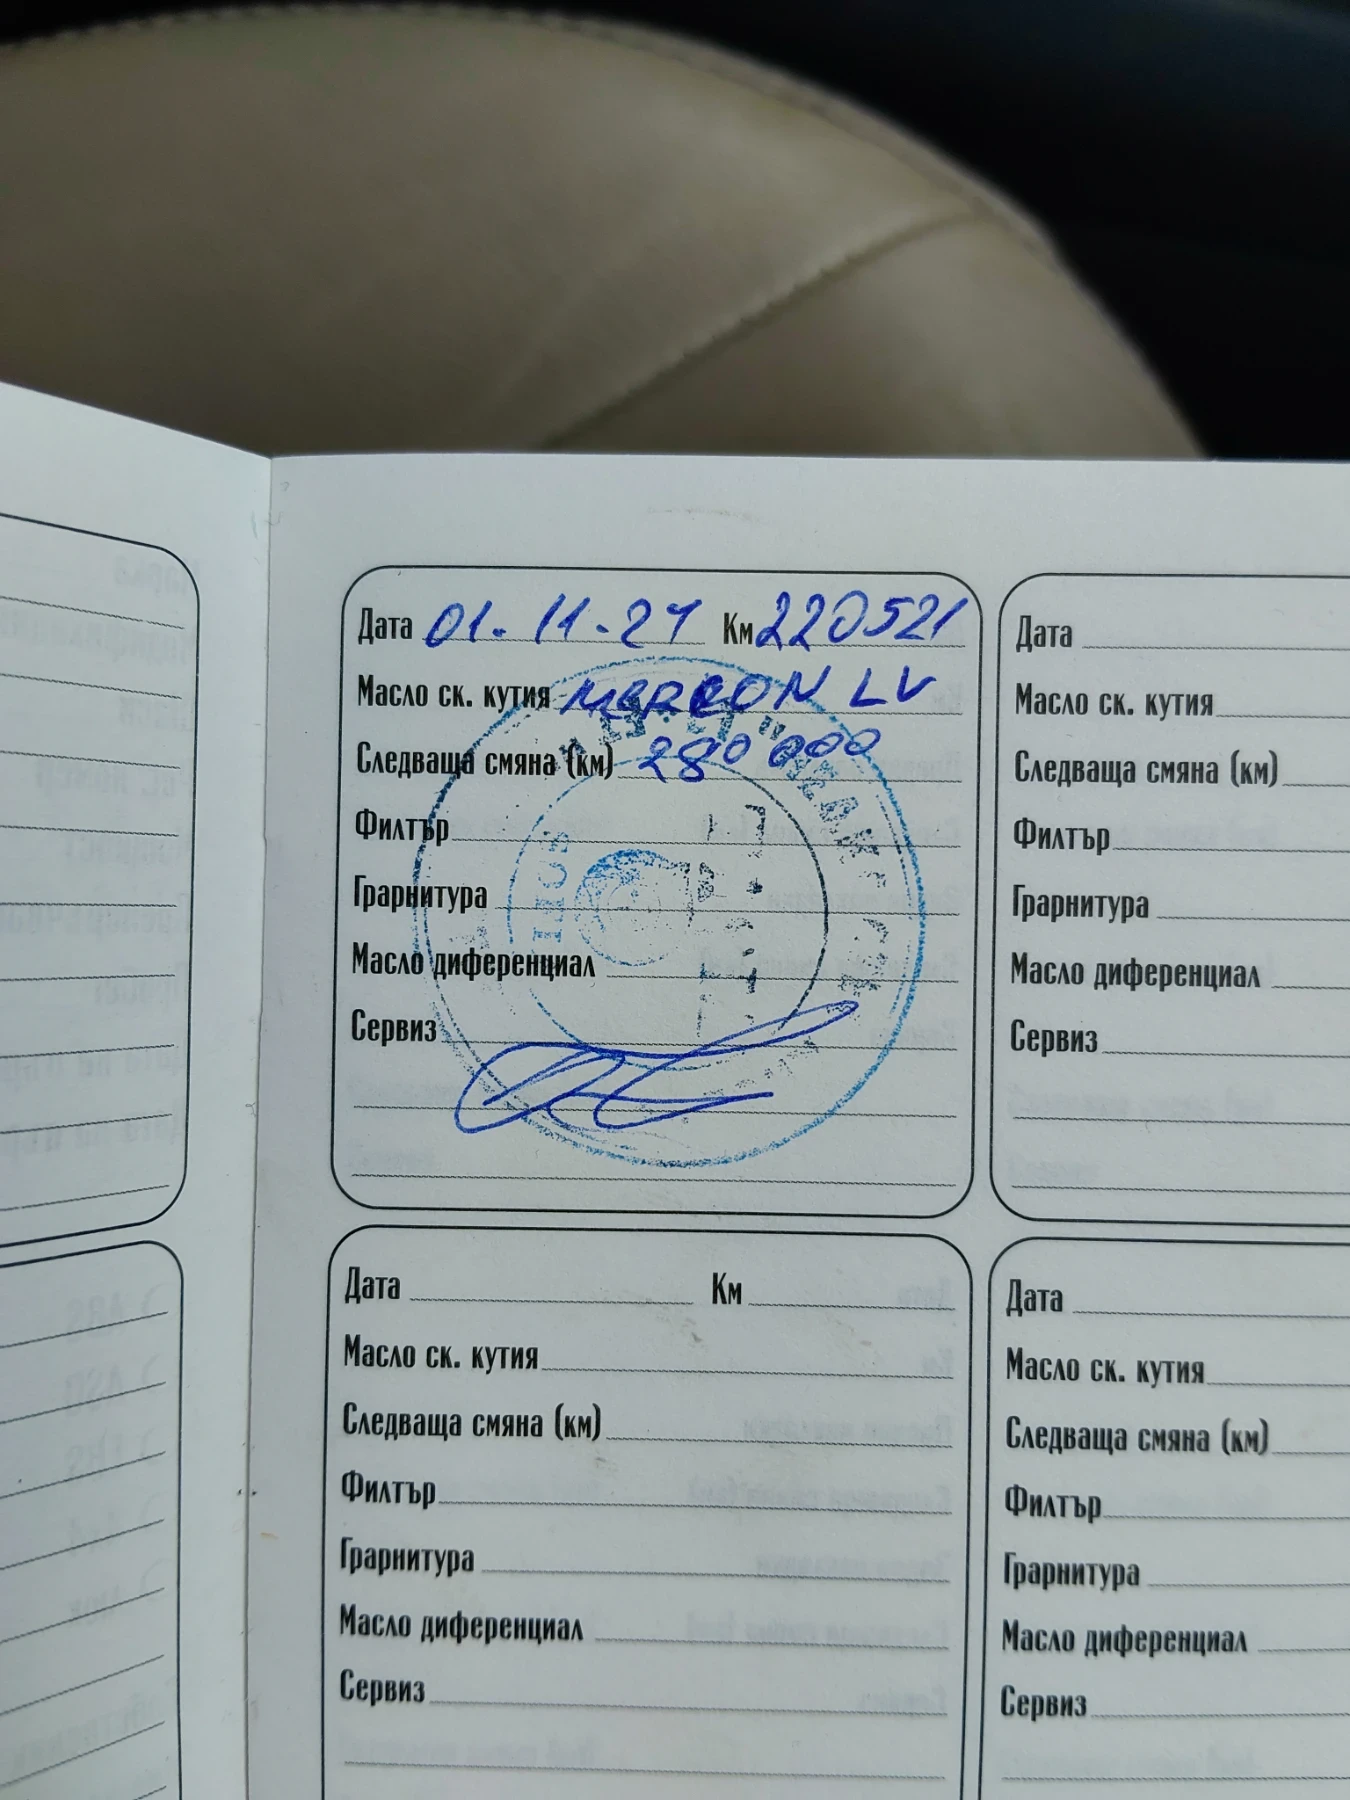 Дата 01.11.24 Км 220521
Масло ск. кутия MERCON LV
Следваща смяна (км) 280 000
Филтър
Грарнитура
Масло диференциал
Сервиз
Дата
Масло ск. кутия
Следваща смяна (км)
Филтър
Грарнитура
Масло диференциал
Сервиз
Дата Км
Масло ск. кутия
Следваща смяна (км)
Филтър
Грарнитура
Масло диференциал
Сервиз
Дата
Масло ск. кутия
Следваща смяна (км)
Филтър
Грарнитура
Масло диференциал
Сервиз